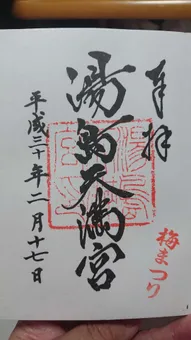 奉拝
湯島天満宮
平成三十年二月十七日
梅まつり